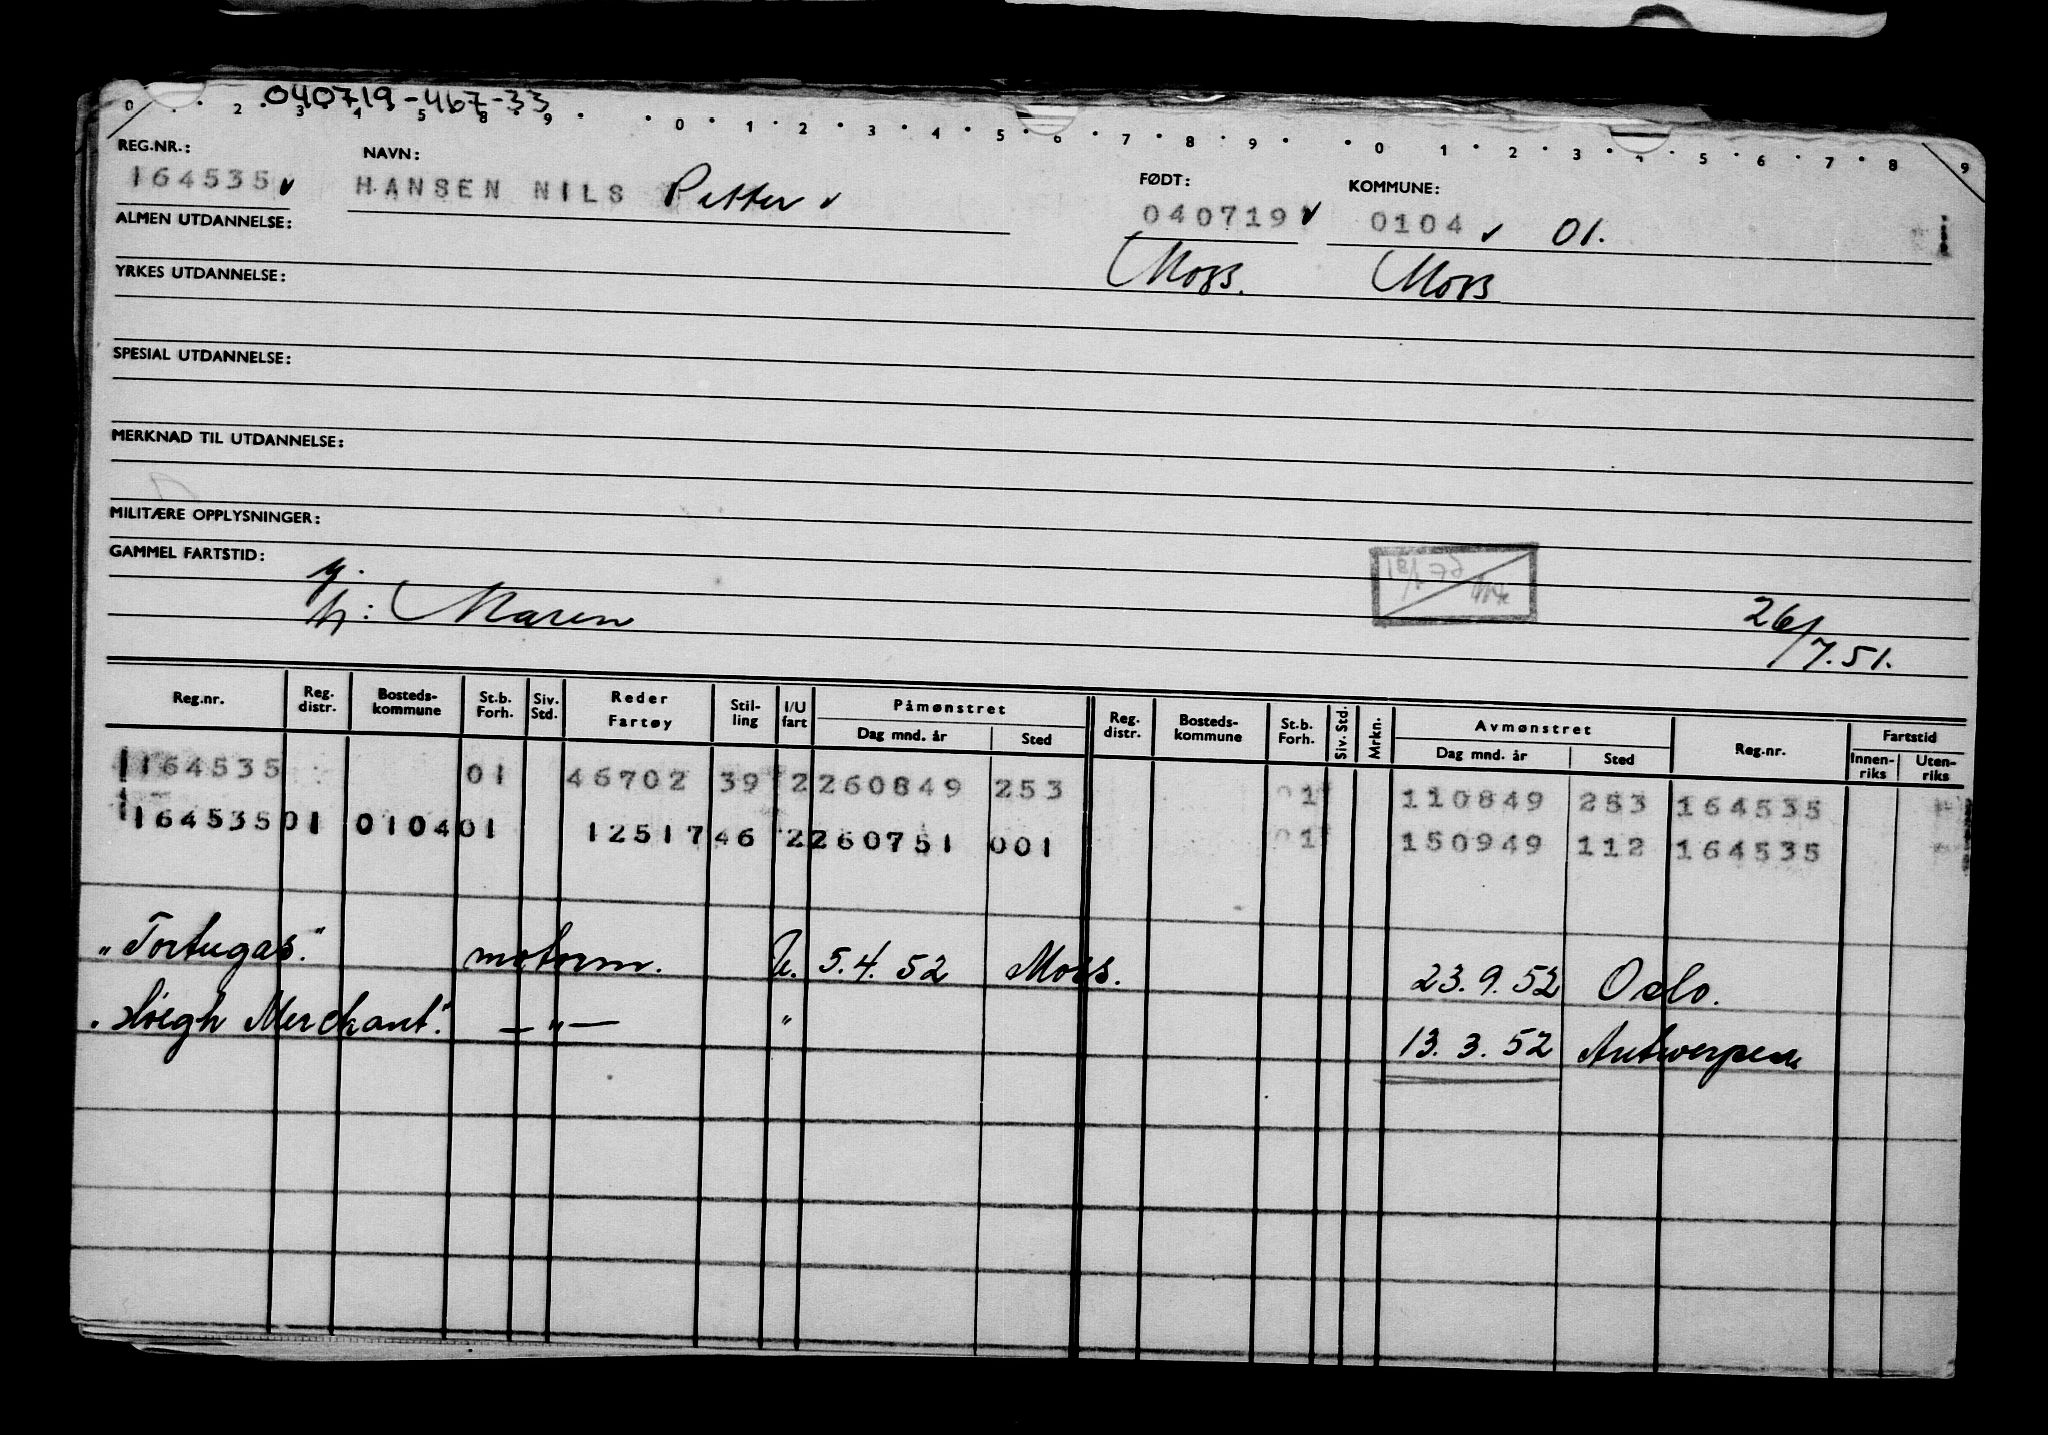 040719-467-33
0 2 3 4 5 8 9 0 1 2 3 4 5 6 7 8 9 0 1 2 3 4 5 6 7 8 9
REG.NR.: NAVN: FØDT: KOMMUNE:
164535 ✓ HANSEN NILS Petter ✓ 040719 ✓ 0104 ✓ 01.
ALMEN UTDANNELSE:
Moss. Moss
YRKES UTDANNELSE:
SPESIAL UTDANNELSE:
MERKNAD TIL UTDANNELSE:
MILITÆRE OPPLYSNINGER:
GAMMEL FARTSTID:
h: Maren 26/7.51.
Reg.nr. Reg. distr. Bosteds-kommune St.b. Forh. Siv. Std. Reder Fartøy Stil-ling I/U fart Påmønstret Dag mnd. år Sted Reg. distr. Bosteds-kommune St.b. Forh. Siv. Std. Mrkn. Avmønstret Dag mnd. år Sted Reg.nr. Fartstid Innen-riks Uten-riks
164535 01 46702 39 2 260849 253 01 110849 253 164535
164535 01 0104 01 12517 46 2 260751 001 01 150949 112 164535
"Tortugas." motorm. U. 5.4.52 Moss. 23.9.52 Oslo.
"Høegh Merchant". —"— " 13.3.52 Antwerpen